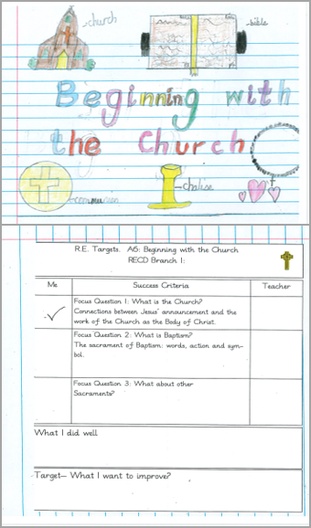 church
bible
Beginning with
the Church
communion
chalise
R.E. Targets. A6: Beginning with the Church
RECD Branch 1:
Me
Success Criteria
Teacher
Focus Question 1: What is the Church?
Connections between Jesus' announcement and the
work of the Church as the Body of Christ.
Focus Question 2: What is Baptism?
The sacrament of Baptism: words, action and sym-
bol.
Focus Question 3: What about other
Sacraments?
What I did well
Target— What I want to improve?